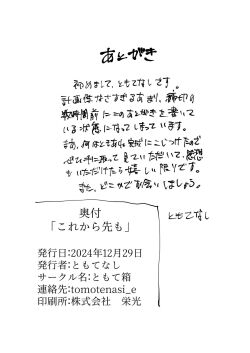 あとがき
初めまして、ともてなしです。
計画性なさすぎるあまり、締切の
数時間前にこのあとがきを書いて
いる状態になってしまっています。
また、何はともあれ完成にこじつけたので
心ひそかに取って見ていただいて、感想
をいただけたら嬉しい限りです。
また、どこかでお会いしましょう。
ともてなし
奥付
「これから先も」
発行日:2024年12月29日
発行者:ともてなし
サークル名:ともて箱
連絡先:tomotenasi_e
印刷所:株式会社 栄光